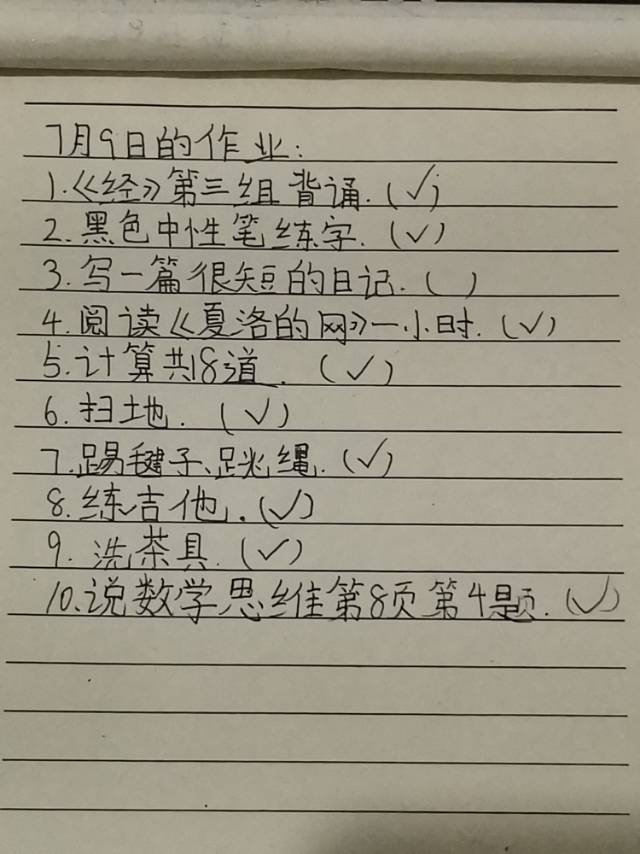 7月9日的作业:
1.《经》第三组背诵.(√)
2.黑色中性笔练字.(√)
3.写一篇很短的日记.( )
4.阅读《夏洛的网》一小时.(√)
5.计算共18道.(√)
6.扫地.(√)
7.踢毽子、跳绳.(√)
8.练吉他.(√)
9.洗茶具.(√)
10.说数学思维第8页第4题.(√)